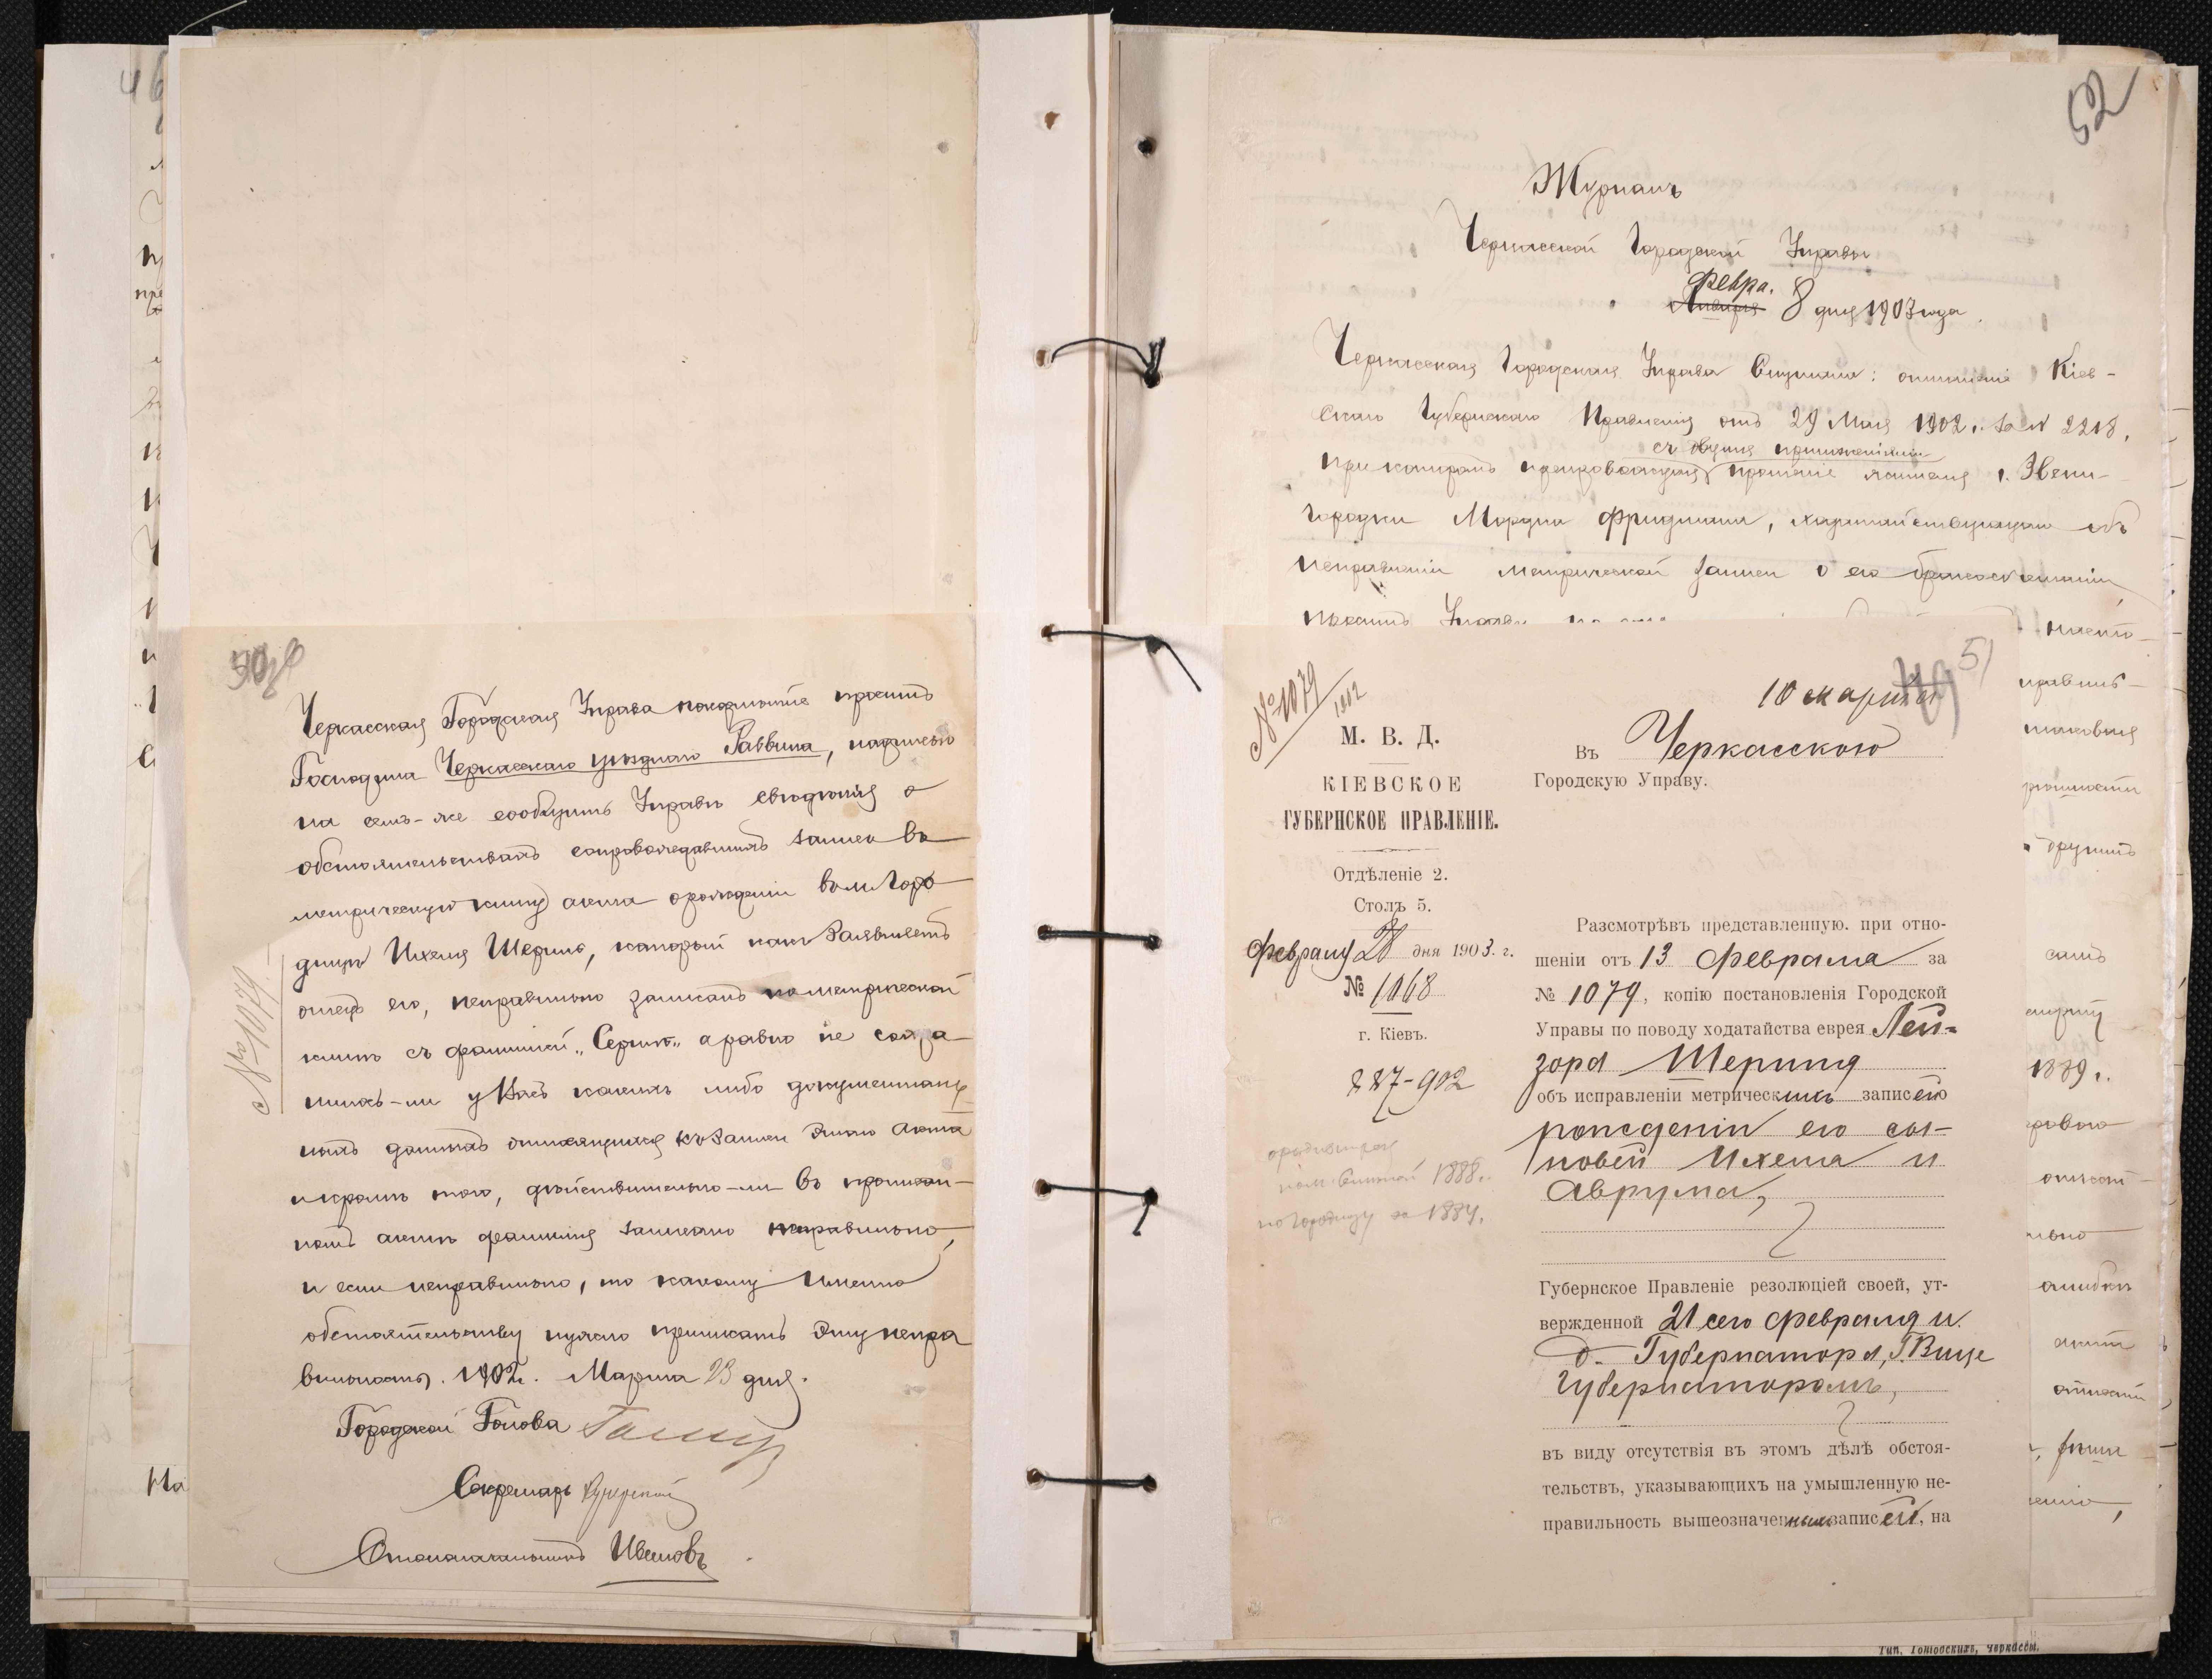 50об
Черкасская Городская Управа покорнѣйше проситъ
Господина Черкасскаго уѣзднаго Раввина, надписью
на семъ-же сообщить Управѣ свѣдѣнія о
обстоятельствахъ сопровождавшихъ запись въ
метрическую книгу акта о рожденіи въ м. Горо-
дищѣ Ихеля Шерина, который какъ заявляетъ
отецъ его, неправильно записанъ по метрической
книгѣ съ фамиліей „Серинъ" а равно не сохра-
нилось-ли у Васъ какихъ либо документаль-
ныхъ данныхъ относящихся къ записи этого акта
и кромѣ того, дѣйствительно-ли въ
номъ актѣ фамилія записана неправильно,
и если неправильно, то какому именно
обстоятельству нужно приписать эту непра
вильность. 1902 г. Марта 23 дня.
Городской Голова
Секретарь
Столоначальникъ Ивановъ
№ 1079
52
Журналъ
Черкасской Городской Управы
Февра.
Января 8 дня 1903 года.
Черкасская Городская Управа Слушала: отношеніе Кіев-
скаго Губернскаго Правленія отъ 29 Мая 1902 г. за № 2218,
съ двумя приложеніями
при которомъ препровождая прошеніе жителя г. Звени-
городки Мордка Фридмана, ходатайствующаго объ
исправленіи метрической записи о его бракосочетаніи,
проситъ Управу
51
№ 1079
1902
10 марта
М. В. Д.
КІЕВСКОЕ
ГУБЕРНСКОЕ ПРАВЛЕНІЕ.
Отдѣленіе 2.
Столъ 5.
Февраля 28 дня 1903. г.
№ 1068
г. Кіевъ.
887-902
1888 г.
по Городищу за 1884.
Въ Черкасскою
Городскую Управу.
Разсмотрѣвъ представленную. при отно-
шеніи отъ 13 Февраля за
№ 1079, копію постановленія Городской
Управы по поводу ходатайства еврея Лей=
зора Шерина
объ исправленіи метрическихъ записей о
рожденіи его сы-
новей Ихеля и
Аврума,
Губернское Правленіе резолюціей своей, ут-
вержденной 21 сего Февраля и.
д. Губернатора, Г. Вице
Губернаторомъ,
въ виду отсутствія въ этомъ дѣлѣ обстоя-
тельствъ, указывающихъ на умышленную не-
правильность вышеозначенныхъ записей, на
1889 г.
Тип. Городскихъ, Черкассы.